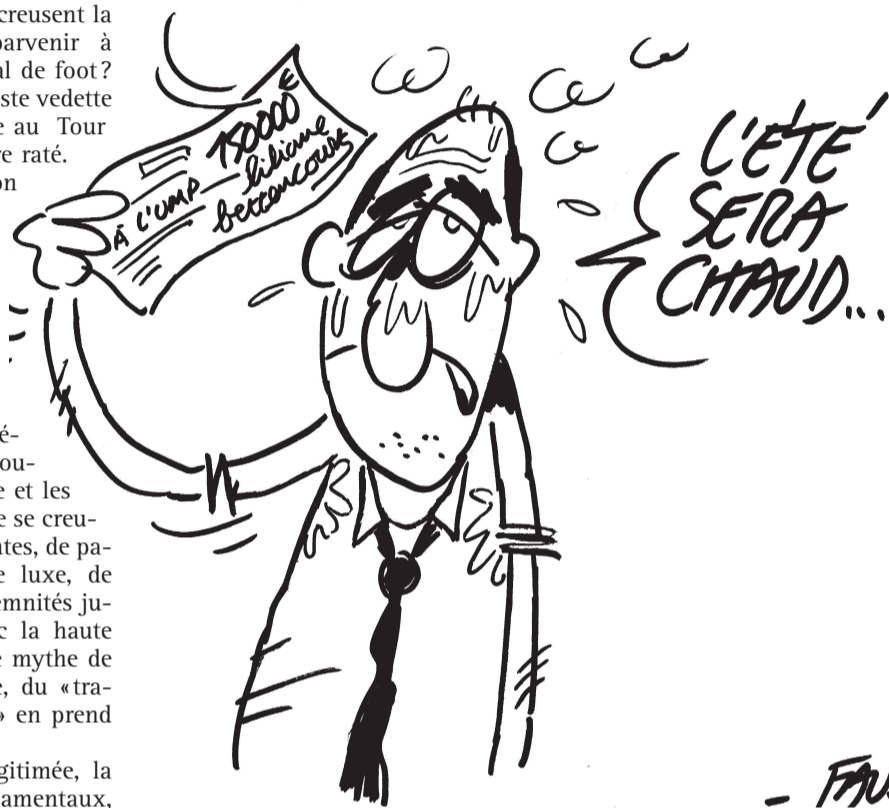 creusent la
parvenir à
al de foot?
ste vedette
e au Tour
re raté.
on
é-
ou-
e et les
e se creu-
ntes, de pa-
e luxe, de
emnités ju-
c la haute
e mythe de
e, du «tra-
» en prend
gitimée, la
damentaux,
150000 €
À L'UMP
liliane
bettencourt
L'ÉTÉ
SERA
CHAUD...
- FAU